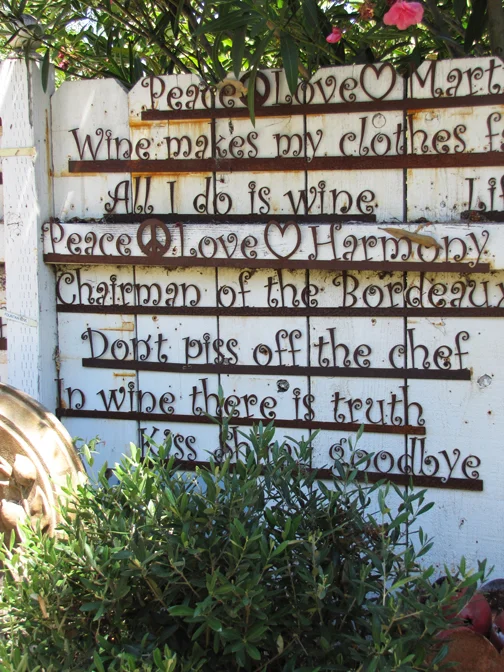 Peace Love Mart
Wine makes my clothes f
All I do is wine Li
Peace Love Harmony
Chairman of the Bordeau
Don't piss off the chef
In wine there is truth
Kiss goodbye